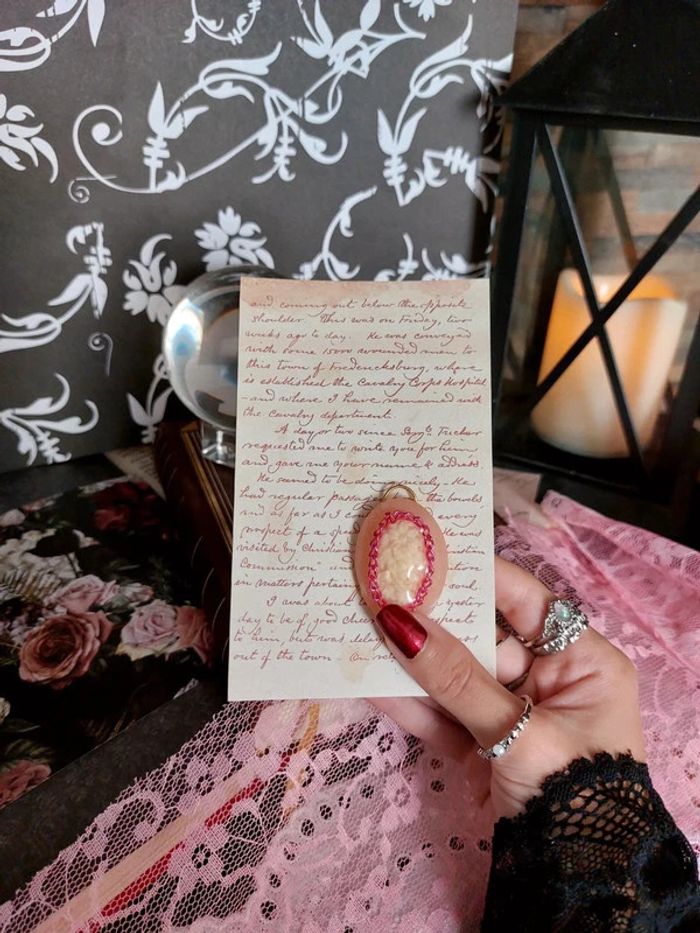 and coming out below the opposite
shoulder. This was on Friday, two
weeks ago to day. He was conveyed
with some 15000 wounded men to
this town of Fredericksburg, where
is established the Cavalry Corps Hospital
- and where I have remained with
the Cavalry department.
A day or two since Serg't. Tucker
requested me to write you for him
and gave me your name & address
He seemed to be doing nicely. He
had regular the bowels
and as far as I every
prospect of a He was
visited by Christian
Commission"
in matters soul.
I was about yester
day to be of good cheer
to him, but was
out of the town - On